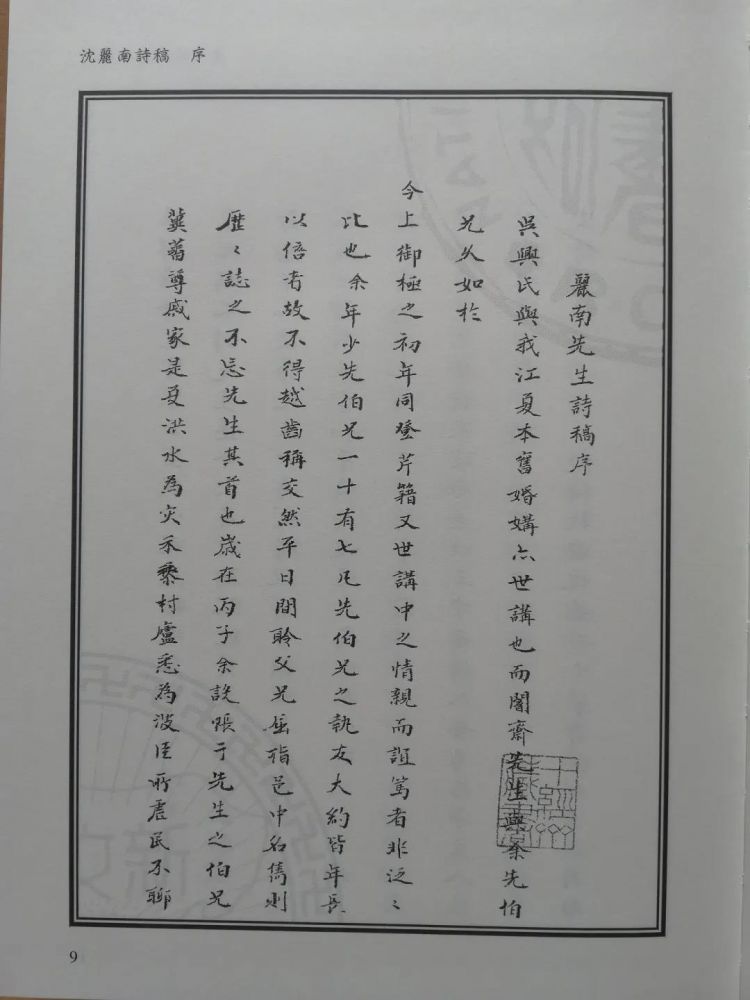 沈麗南詩稿 序
麗南先生詩稿序
吳興氏與我江夏本舊婚媾亦世講也而闇齋先生與余先伯
兄久如於
今上御極之初年同登芹籍又世講中之情親而誼篤者非泛〻
比也余年少先伯兄一十有七凡先伯兄之執友大約皆年長
以倍者故不得越齒稱交然平日間聆父兄屈指邑中名儁則
歷〻誌之不忘先生其首也歲在丙子余設帳于先生之伯兄
蓂階尊戚家是夏洪水為灾禾黍村廬悉為波臣所震民不聊
9